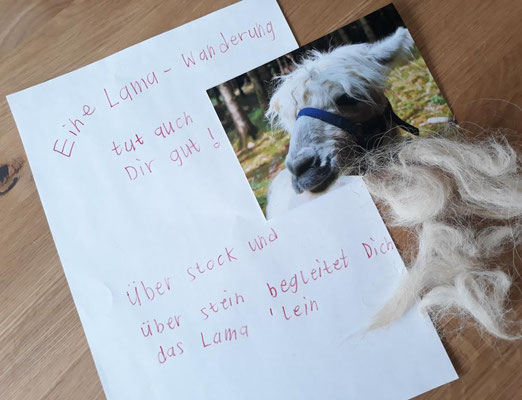 Eine Lama - Wanderung
tut auch
Dir gut!
Über stock und
über stein begleitet Dich
das Lama 'lein